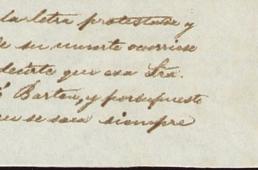 la letra protestada y
de su muerte ocurriese
decirte que esa Sra.
Barton, y por supuesto
que se saca siempre